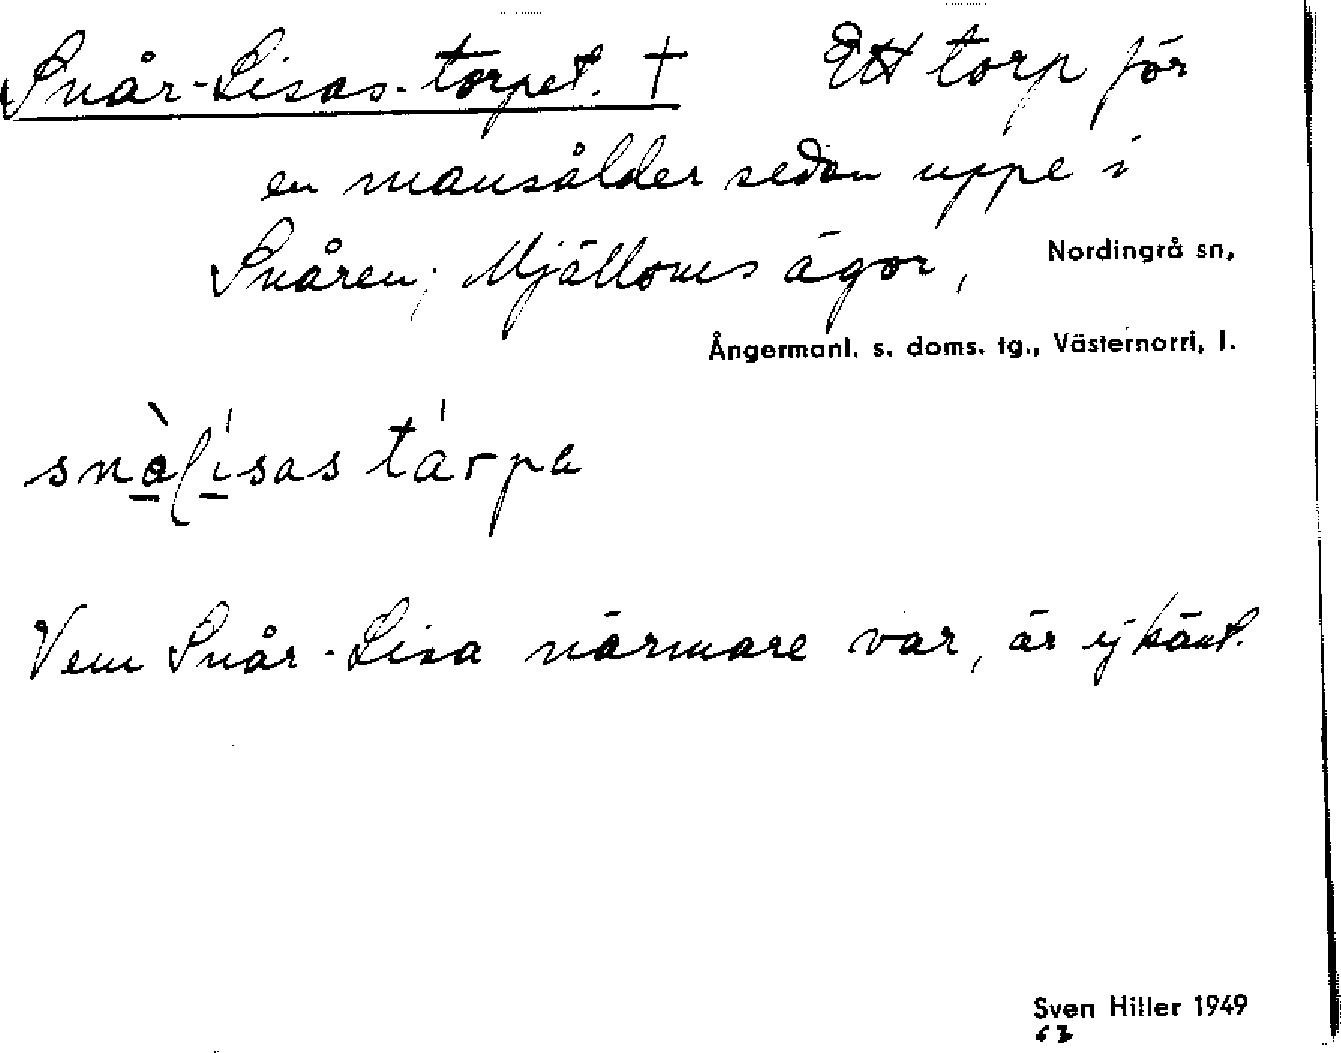 Snår-Lisas-torpet. † Ett torp för
en mansålder sedan uppe i
Snåren; Mjälloms ägor,
Nordingrå sn,
Ångermanl. s. doms. tg., Västernorrl, l.
Vem Snår-Lisa närmare var, är ej känt.
Sven Hiller 1949
63